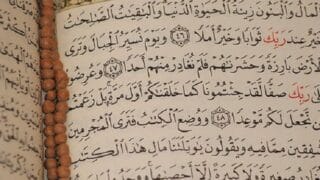 ٱلْمَالُ وَٱلْبَنُونَ زِينَةُ ٱلْحَيَوٰةِ ٱلدُّنْيَا وَٱلْبَٰقِيَٰتُ ٱلصَّٰلِحَٰتُ
خَيْرٌ عِندَ رَبِّكَ ثَوَابًا وَخَيْرٌ أَمَلًا ٤٦ وَيَوْمَ نُسَيِّرُ ٱلْجِبَالَ وَتَرَى
ٱلْأَرْضَ بَارِزَةً وَحَشَرْنَٰهُمْ فَلَمْ نُغَادِرْ مِنْهُمْ أَحَدًا ٤٧ وَعُرِضُوا۟
رَبِّكَ صَفًّا لَّقَدْ جِئْتُمُونَا كَمَا خَلَقْنَٰكُمْ أَوَّلَ مَرَّةٍۭ بَلْ زَعَمْتُمْ
نَّجْعَلَ لَكُم مَّوْعِدًا ٤٨ وَوُضِعَ ٱلْكِتَٰبُ فَتَرَى ٱلْمُجْرِمِينَ
مُشْفِقِينَ مِمَّا فِيهِ وَيَقُولُونَ يَٰوَيْلَتَنَا مَالِ هَٰذَا ٱلْكِتَٰبِ
يُغَادِرُ صَغِيرَةً وَلَا كَبِيرَةً إِلَّآ أَحْصَىٰهَا